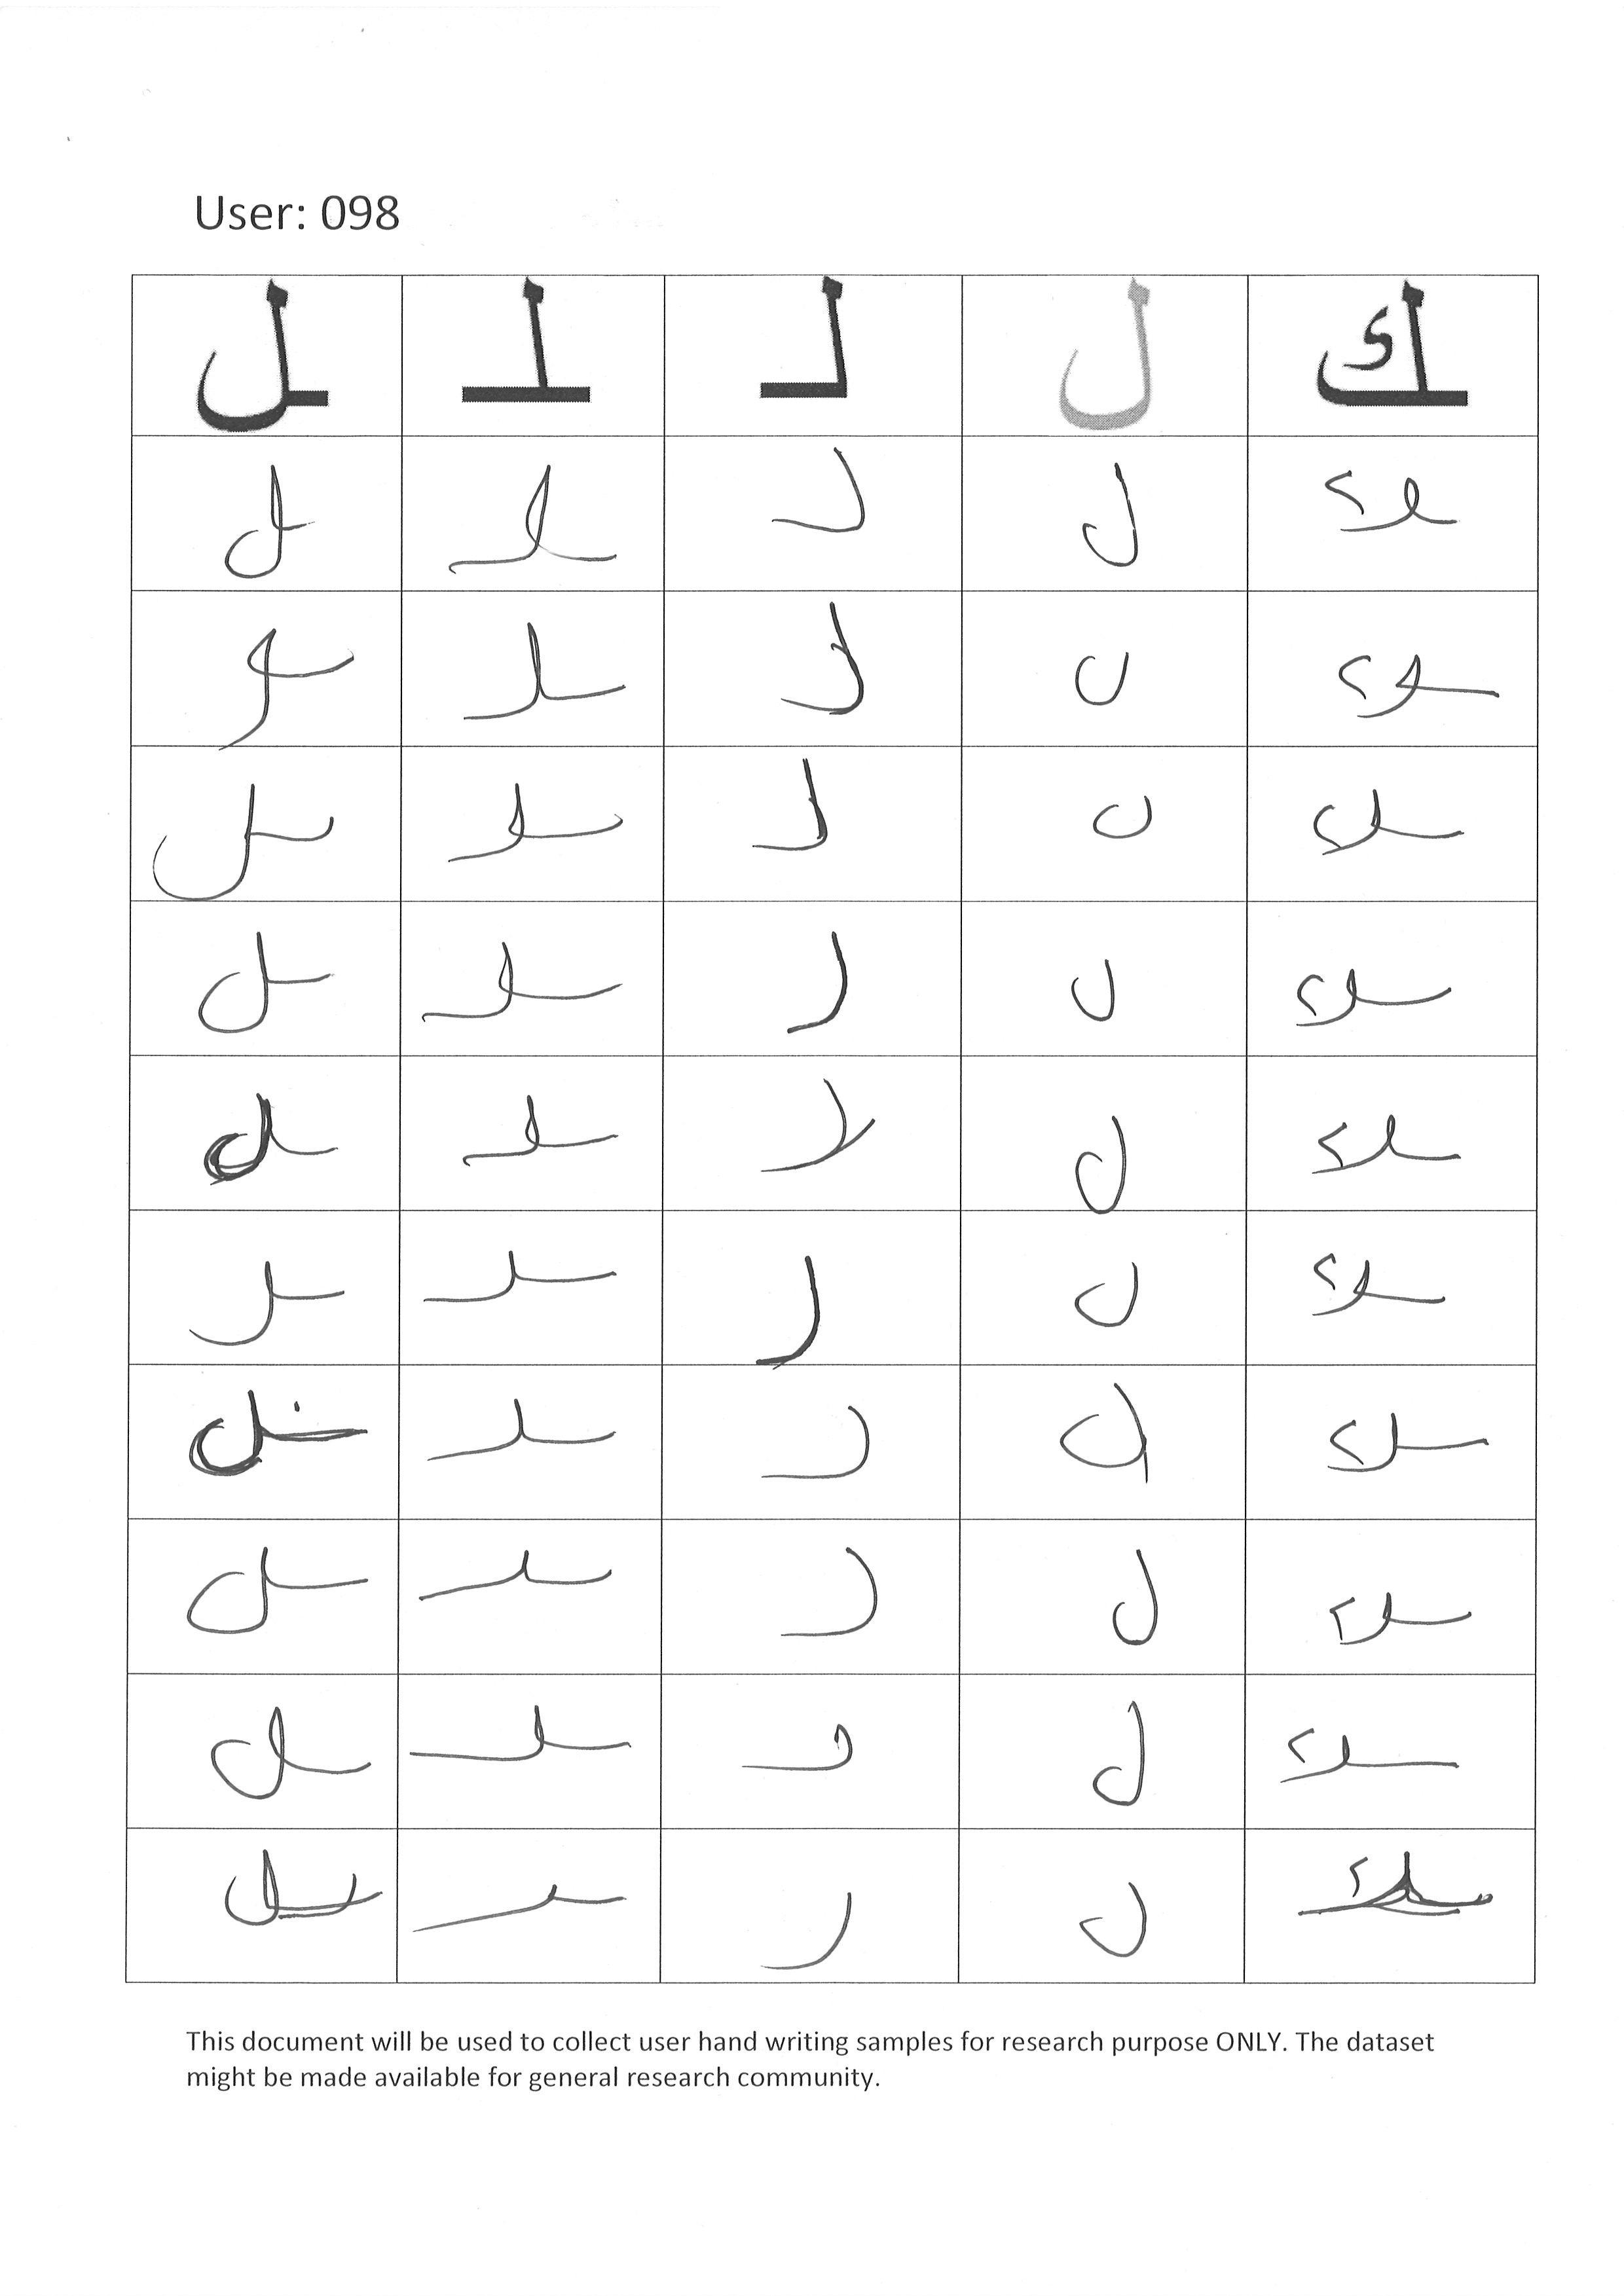 User: 098
ـل ـلـ لـ ل ـك
ـل ـلـ لـ ل ـك
ـل ـلـ لـ ل ـك
ـل ـلـ لـ ل ـك
ـل ـلـ لـ ل ـك
ـل ـلـ لـ ل ـك
ـل ـلـ لـ ل ـك
ـل ـلـ لـ ل ـك
ـل ـلـ لـ ل ـك
ـل ـلـ لـ ل ـك
ـل ـلـ لـ ل ـك
This document will be used to collect user hand writing samples for research purpose ONLY. The dataset
might be made available for general research community.